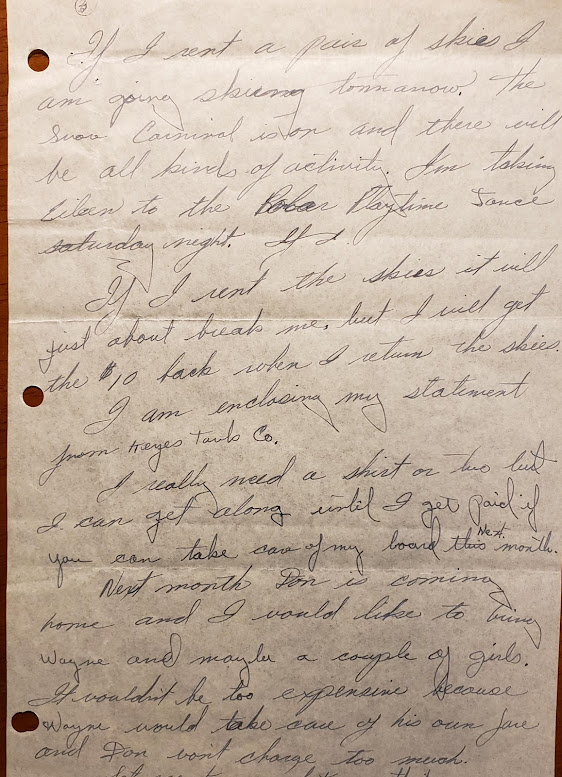 2
If I rent a pair of skies I
am going skiing tommarow. The
Snow Carnival is on and there will
be all kinds of activity. I'm taking
Eileen to the Polar Playtime Dance
saturday night. If I
If I rent the skies it will
just about break me, but I will get
the $10 back when I return the skies.
I am enclosing my statement
from Keyes Co.
I really need a shirt or two but
I can get along until I get paid if
you can take care of my board this Next month.
Next month Don is coming
home and I would like to bring
Wayne and maybe a couple of girls.
It wouldn't be too expensive because
Wayne would take care of his own fare
and Don won't charge too much.